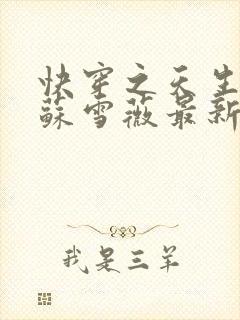 快穿之天生
蘇雪薇最新
我是三羊